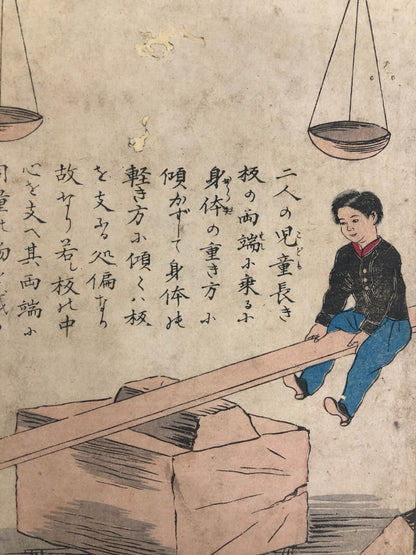 二人の児童長き
板の両端に乗るに
身体の重き方に
傾かずして身体の
軽き方に傾くハ板
を支ふる処偏なる
故なり若し板の中
心を支へ其両端に